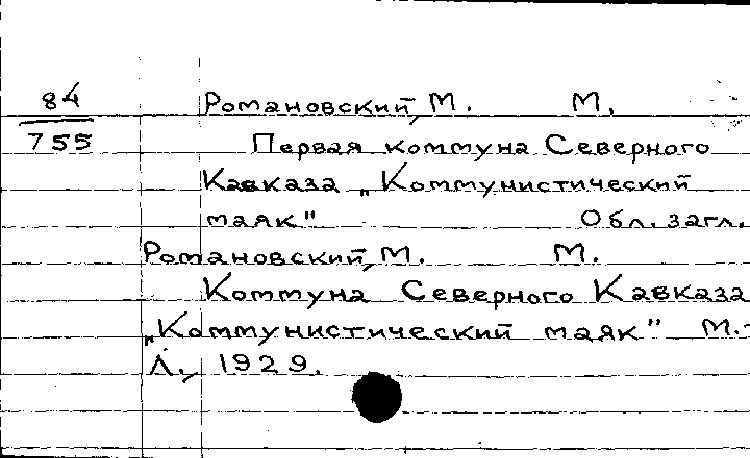 84 Романовский, М. М.
755 Первая коммуна Северного
Кавказа „Коммунистический
маяк" Обл. загл.
Романовский, М. М.
Коммуна Северного Кавказа
„Коммунистический маяк" М.-
Л., 1929.